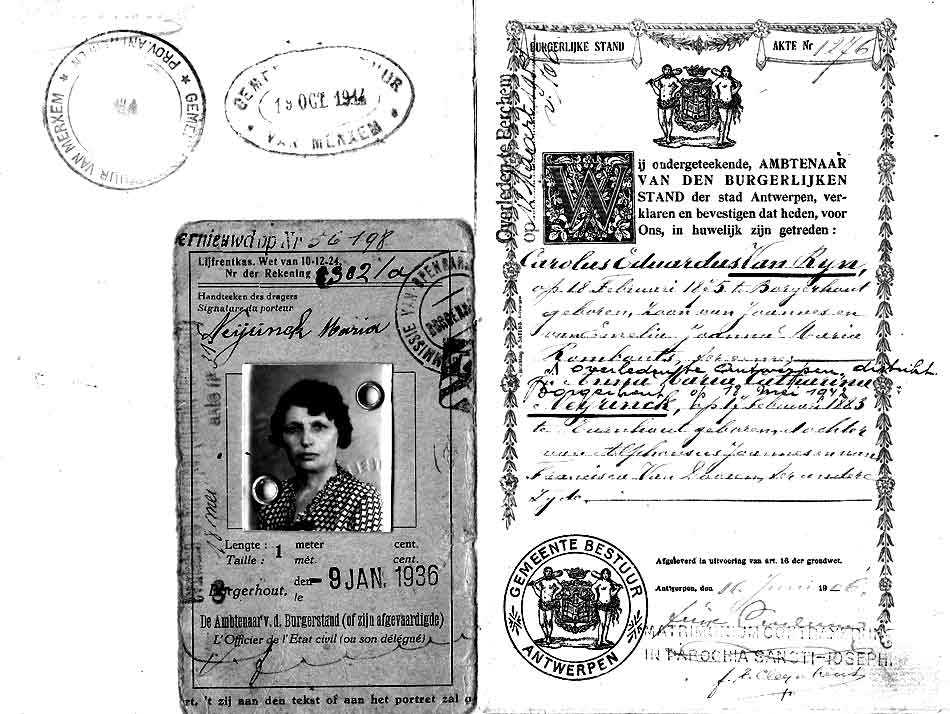 GEMEENTEBESTUUR VAN MERXEM * PROV. ANTWERPEN *
GEMEENTEBESTUUR
19 OCT. 1944
* VAN MERXEM *
ernieuwd op Nr 56198
Lijfrentkas. Wet van 10-12-24.
Nr der Rekening
Handteeken des dragers
Signature du porteur
Neyrinck Maria
18 mei
Lengte : 1 meter cent.
Taille : mét. cent.
Borgerhout, den - 9 JAN. 1936
le
De Ambtenaar v. d. Burgerstand (of zijn afgevaardigde)
L'Officier de l'Etat civil (ou son délégué)
rt, 't zij aan den tekst of aan het portret zal o
Overleden te Berchem
op 12 Maart
BURGERLIJKE STAND
AKTE Nr 1276
Wij ondergeteekende, AMBTENAAR
VAN DEN BURGERLIJKEN
STAND der stad Antwerpen, ver-
klaren en bevestigen dat heden, voor
Ons, in huwelijk zijn getreden :
Carolus Eduardus Van Ryn,
op 18 Februari 1875 te Borgerhout
geboren, zoon van Joannes en
van Emelia Joanna Maria
Rombauts, ter eenre
overleden te Antwerpen, district
Borgerhout op 18 mei 1942
Anna Maria Catharina
Neyrinck, op 17 Februari 1883
te geboren, dochter
van Alphonsus Joannes en van
Francisca Van ter andere
zyde.
GEMEENTE BESTUUR
* ANTWERPEN *
Afgeleverd in uitvoering van art. 16 der grondwet.
Antwerpen, den 16 Juni 1926.
MATRIMONIUM
IN PAROCHIA SANCTI-JOSEPHI